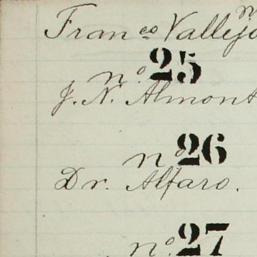 Franco Vallejo
no. 25
J. N. Almont
no. 26
Dr. Alfaro.
no. 27